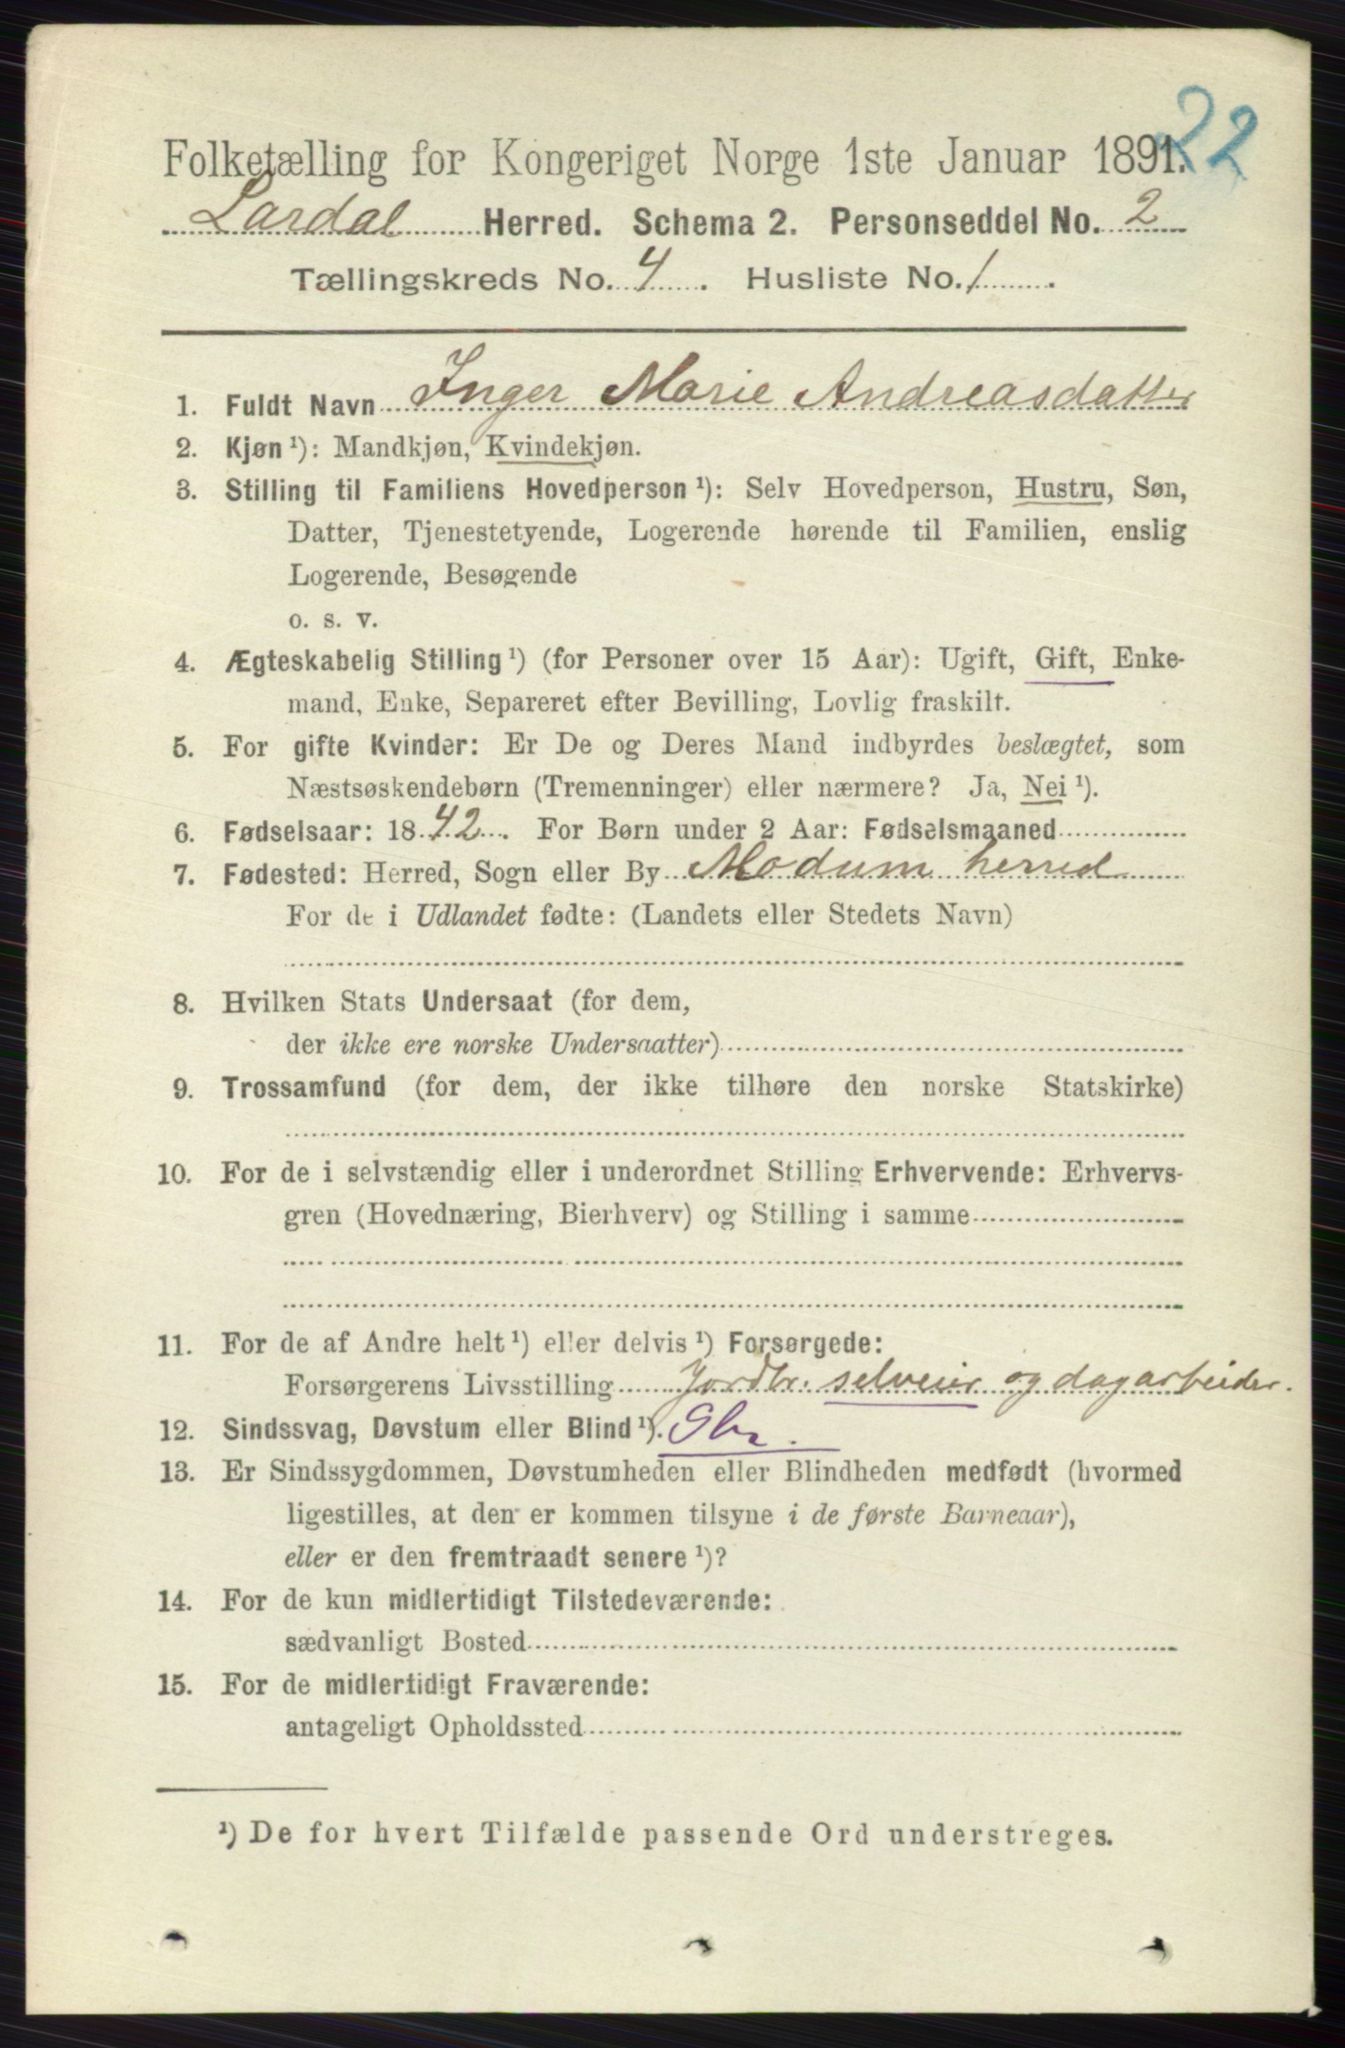 22
Folketælling for Kongeriget Norge 1ste Januar 1891.
Lardal Herred. Schema 2. Personseddel No. 2
Tællingskreds No. 4. Husliste No. 1.
1. Fuldt Navn Inger Marie Andreasdatter
2. Kjøn ¹): Mandkjøn, Kvindekjøn.
3. Stilling til Familiens Hovedperson ¹): Selv Hovedperson, Hustru, Søn,
Datter, Tjenestetyende, Logerende hørende til Familien, enslig
Logerende, Besøgende
o. s. v.
4. Ægteskabelig Stilling ¹) (for Personer over 15 Aar): Ugift, Gift, Enke-
mand, Enke, Separeret efter Bevilling, Lovlig fraskilt.
5. For gifte Kvinder: Er De og Deres Mand indbyrdes beslægtet, som
Næstsøskendebørn (Tremenninger) eller nærmere? Ja, Nei ¹).
6. Fødselsaar: 1842. For Børn under 2 Aar: Fødselsmaaned
7. Fødested: Herred, Sogn eller By Modum herred
For de i Udlandet fødte: (Landets eller Stedets Navn)
8. Hvilken Stats Undersaat (for dem,
der ikke ere norske Undersaatter)
9. Trossamfund (for dem, der ikke tilhøre den norske Statskirke)
10. For de i selvstændig eller i underordnet Stilling Erhvervende: Erhvervs-
gren (Hovednæring, Bierhverv) og Stilling i samme
11. For de af Andre helt ¹) eller delvis ¹) Forsørgede:
Forsørgerens Livsstilling Jordbr. selveier og dagarbeider.
12. Sindssvag, Døvstum eller Blind ¹).
13. Er Sindssygdommen, Døvstumheden eller Blindheden medfødt (hvormed
ligestilles, at den er kommen tilsyne i de første Barneaar),
eller er den fremtraadt senere ¹)?
14. For de kun midlertidigt Tilstedeværende:
sædvanligt Bosted
15. For de midlertidigt Fraværende:
antageligt Opholdssted
¹) De for hvert Tilfælde passende Ord understreges.